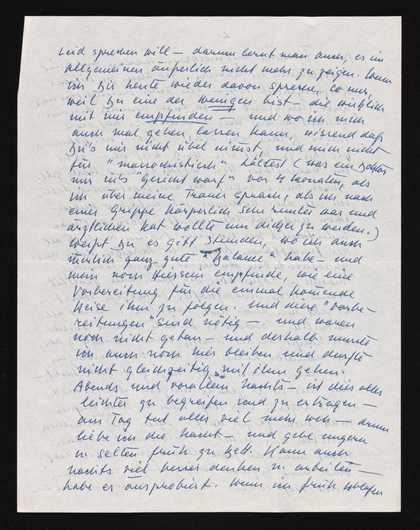 Leid sprechen will – darum lernt man auch, es im
allgemeinen äußerlich nicht mehr zu zeigen. Wenn
ich Dir heute wieder davon spreche, so nur,
weil Du eine der wenigen bist – die wirklich
mit mir empfinden – und wo ich mich
auch mal gehen lassen kann, während daß
Du's mir nicht übel nimmst, und mich nicht
für "masochistisch" hältst (was ein Doktor
mir ins "Gesicht warf" vor 4 Monaten, als
ich über meine Trauer sprach, als ich nach
einer Grippe körperlich sehr runter war und
ärztlichen Rat wollte um
Weißt Du es gibt Stunden, wo ich auch
ganz gute "Balance" habe – und
mein noch Hiersein empfinde, wie eine
Vorbereitung für die einmal kommende
Reise ihm zu folgen. Und diese "Vorbe-
reitungen" sind nötig – und waren
noch nicht getan – und deshalb musste
ich auch noch hier bleiben und durfte
nicht gleichzeitig mit ihm gehen.
Abends und vor allem Nachts – ist dies alles
leichter zu begreifen und zu ertragen –
am Tag tut alles viel mehr weh – drum
liebe ich die Nacht – und gehe ungern
u. selten früh zu Bett. Kann auch
nachts viel besser denken u. arbeiten –
habe es ausprobiert. Wenn ich früh schlafen